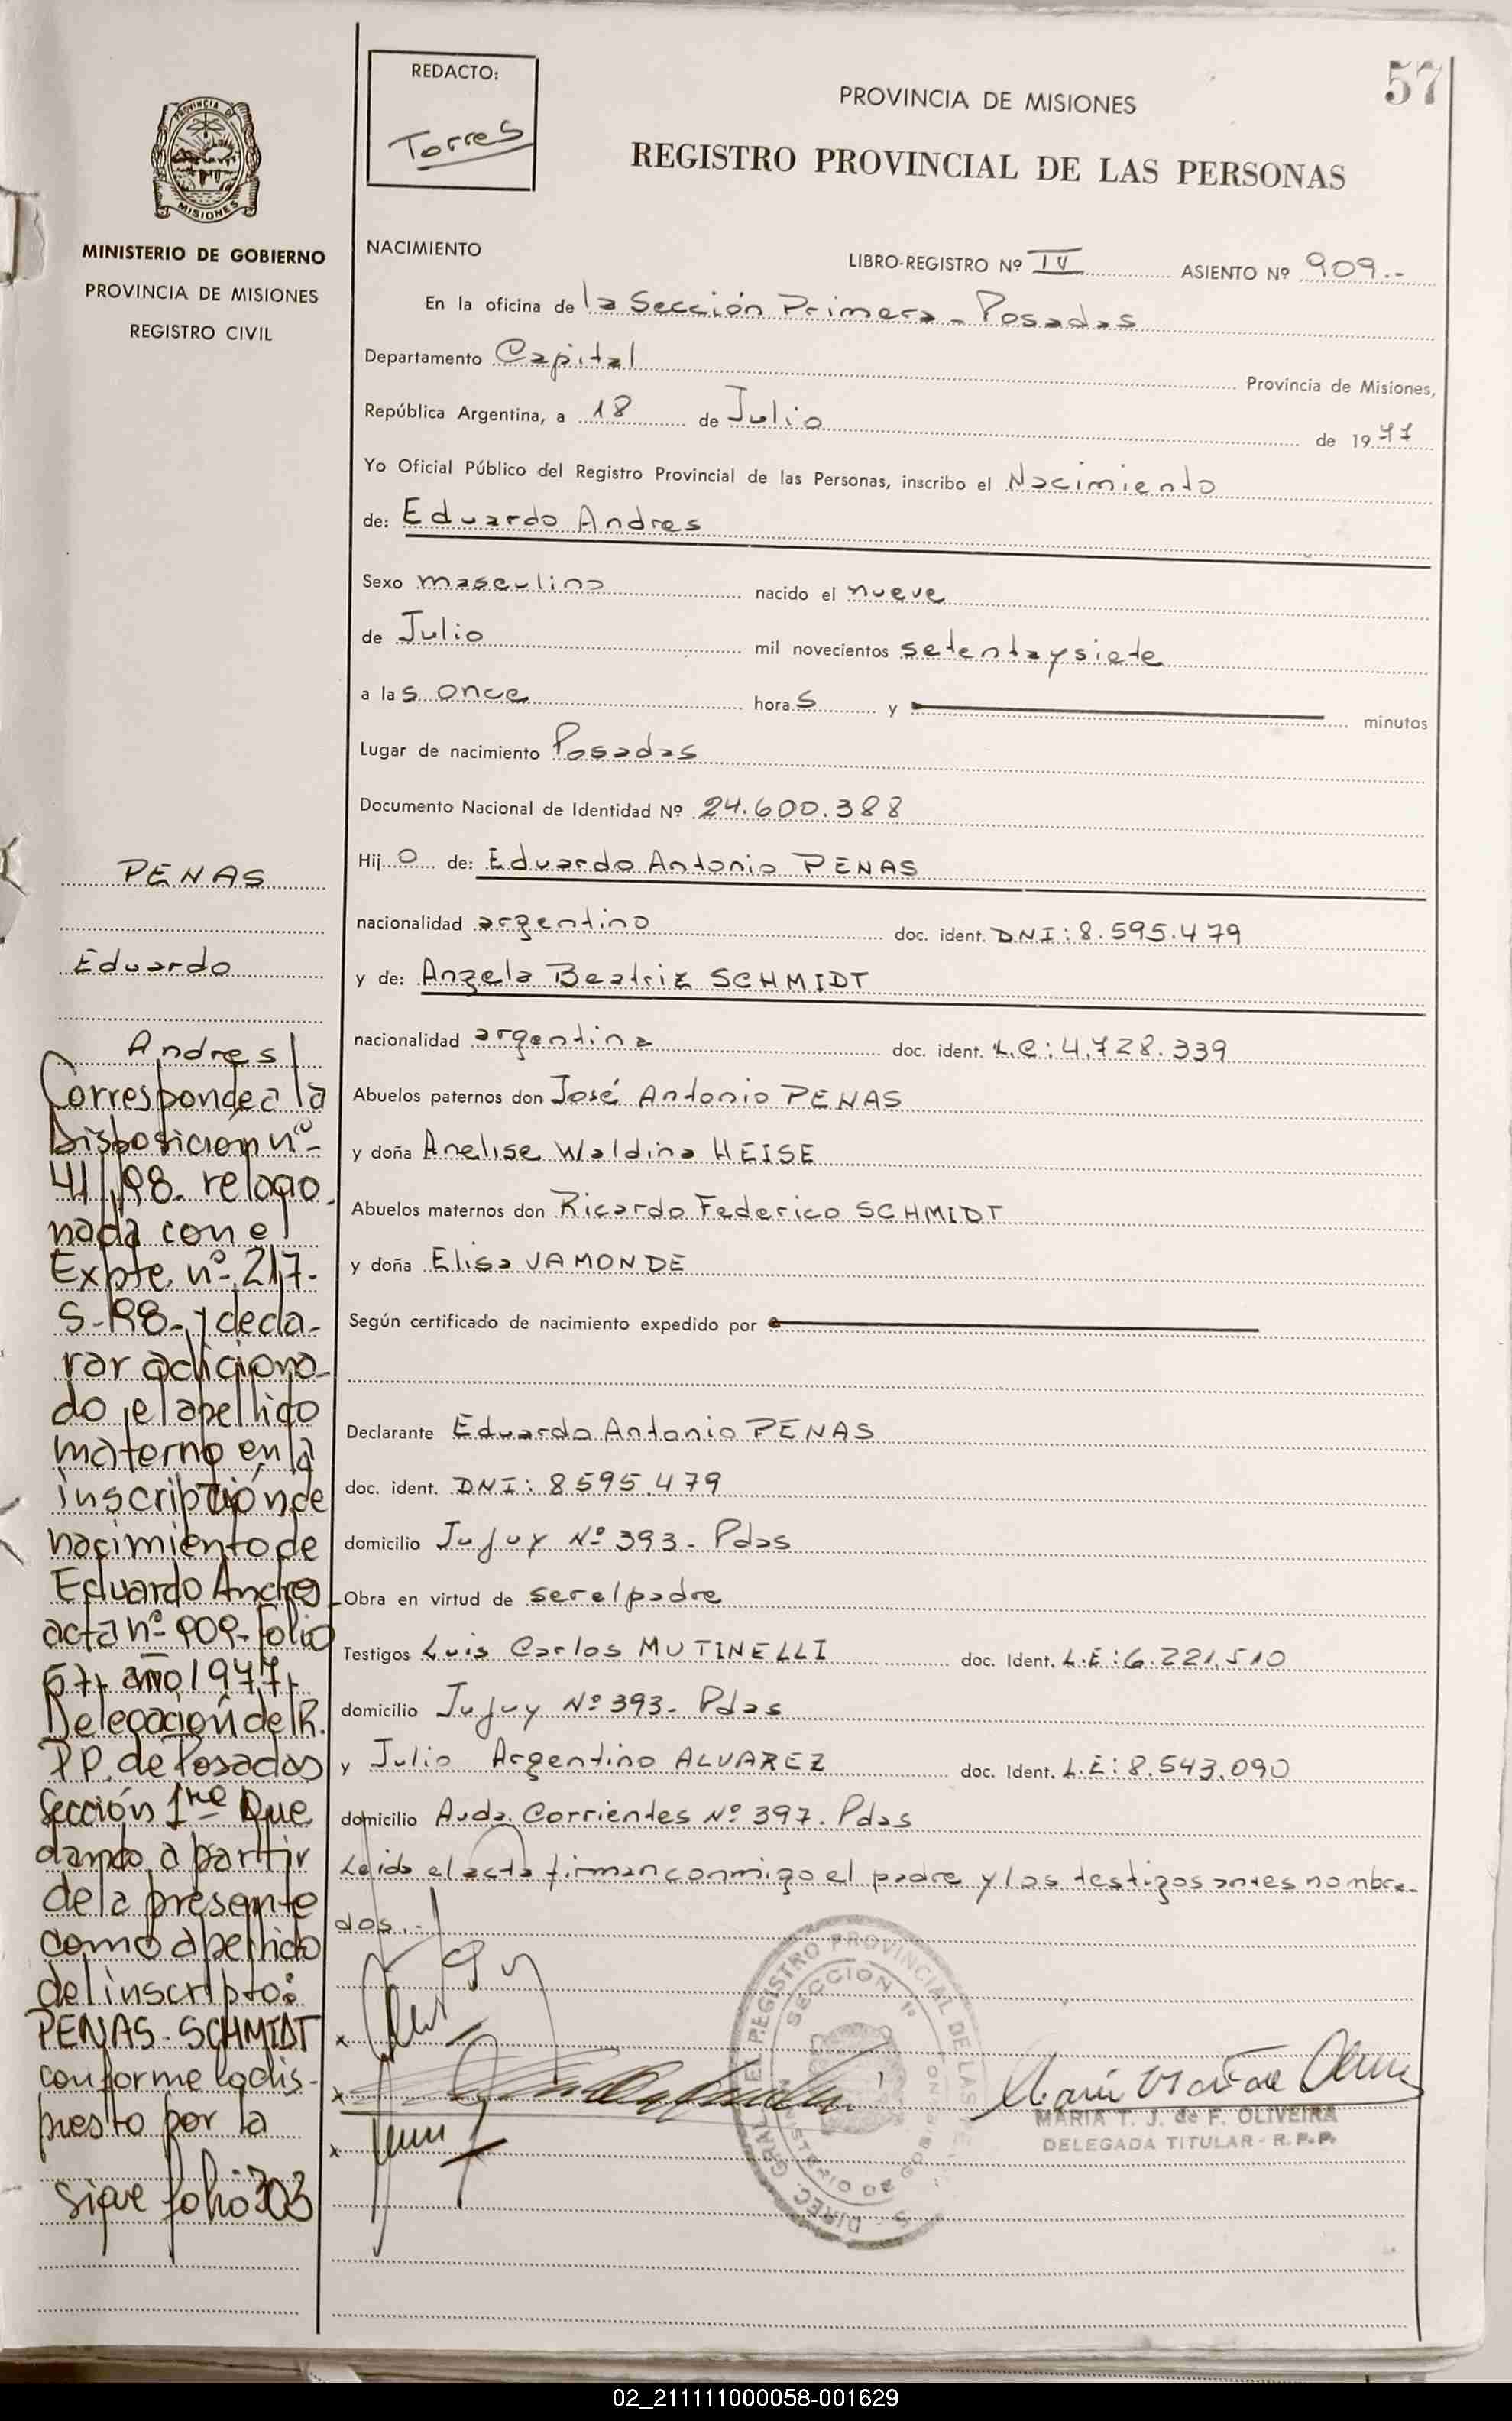 57
REDACTO:
Torres
PROVINCIA DE MISIONES
REGISTRO PROVINCIAL DE LAS PERSONAS
PROVINCIA DE
MISIONES
MINISTERIO DE GOBIERNO
PROVINCIA DE MISIONES
REGISTRO CIVIL
NACIMIENTO
LIBRO-REGISTRO Nº IV ASIENTO Nº 909.-
En la oficina de la Sección Primera - Posadas
Departamento Capital Provincia de Misiones,
República Argentina, a 18 de Julio de 1977
Yo Oficial Público del Registro Provincial de las Personas, inscribo el Nacimiento
de: Eduardo Andres
Sexo masculino nacido el nueve
de Julio mil novecientos setentaysiete
a las once horas y minutos
Lugar de nacimiento Posadas
Documento Nacional de Identidad Nº 24.600.388
Hijo de: Eduardo Antonio PENAS
nacionalidad argentino doc. ident. DNI: 8.595.479
y de: Angela Beatriz SCHMIDT
nacionalidad argentina doc. ident. L.C: 4.728.339
Abuelos paternos don José Antonio PENAS
y doña Anelise Waldina HEISE
Abuelos maternos don Ricardo Federico SCHMIDT
y doña Elisa VAMONDE
Según certificado de nacimiento expedido por
Declarante Eduardo Antonio PENAS
doc. ident. DNI: 8595.479
domicilio Jujuy Nº 393 - Pdas
Obra en virtud de ser el padre
Testigos Luis Carlos MUTINELLI doc. Ident. L.E: 6.221.510
domicilio Jujuy Nº 393 - Pdas
y Julio Argentino ALVAREZ doc. Ident. L.E: 8.543.090
domicilio Avda. Corrientes Nº 397. Pdas
Leida el acta firman conmigo el padre y los testigos antes nombra-
dos.-
PENAS
Eduardo
Andres
Corresponde a la
Disposición nº
41/98. relacio-
nada con el
Expte. nº 217-
S-98- y decla-
rar adiciona-
do el apellido
materno en la
inscripción de
nacimiento de
Eduardo Andres
acta nº 909- folio
57- año 1977-
Delegación del R.
P.P. de Posadas
Sección 1ra Que
dando a partir
de la presente
como apellido
del inscripto:
PENAS-SCHMIDT
conforme lo dis-
puesto por la
sigue folio 303
x
x
x
DIREC. GRAL. DEL REGISTRO PROVINCIAL DE LAS
SECCION 1º
MINISTERIO DE GOBIERNO
MARIA T. J. de F. OLIVEIRA
DELEGADA TITULAR - R.P.P.
02_211111000058-001629